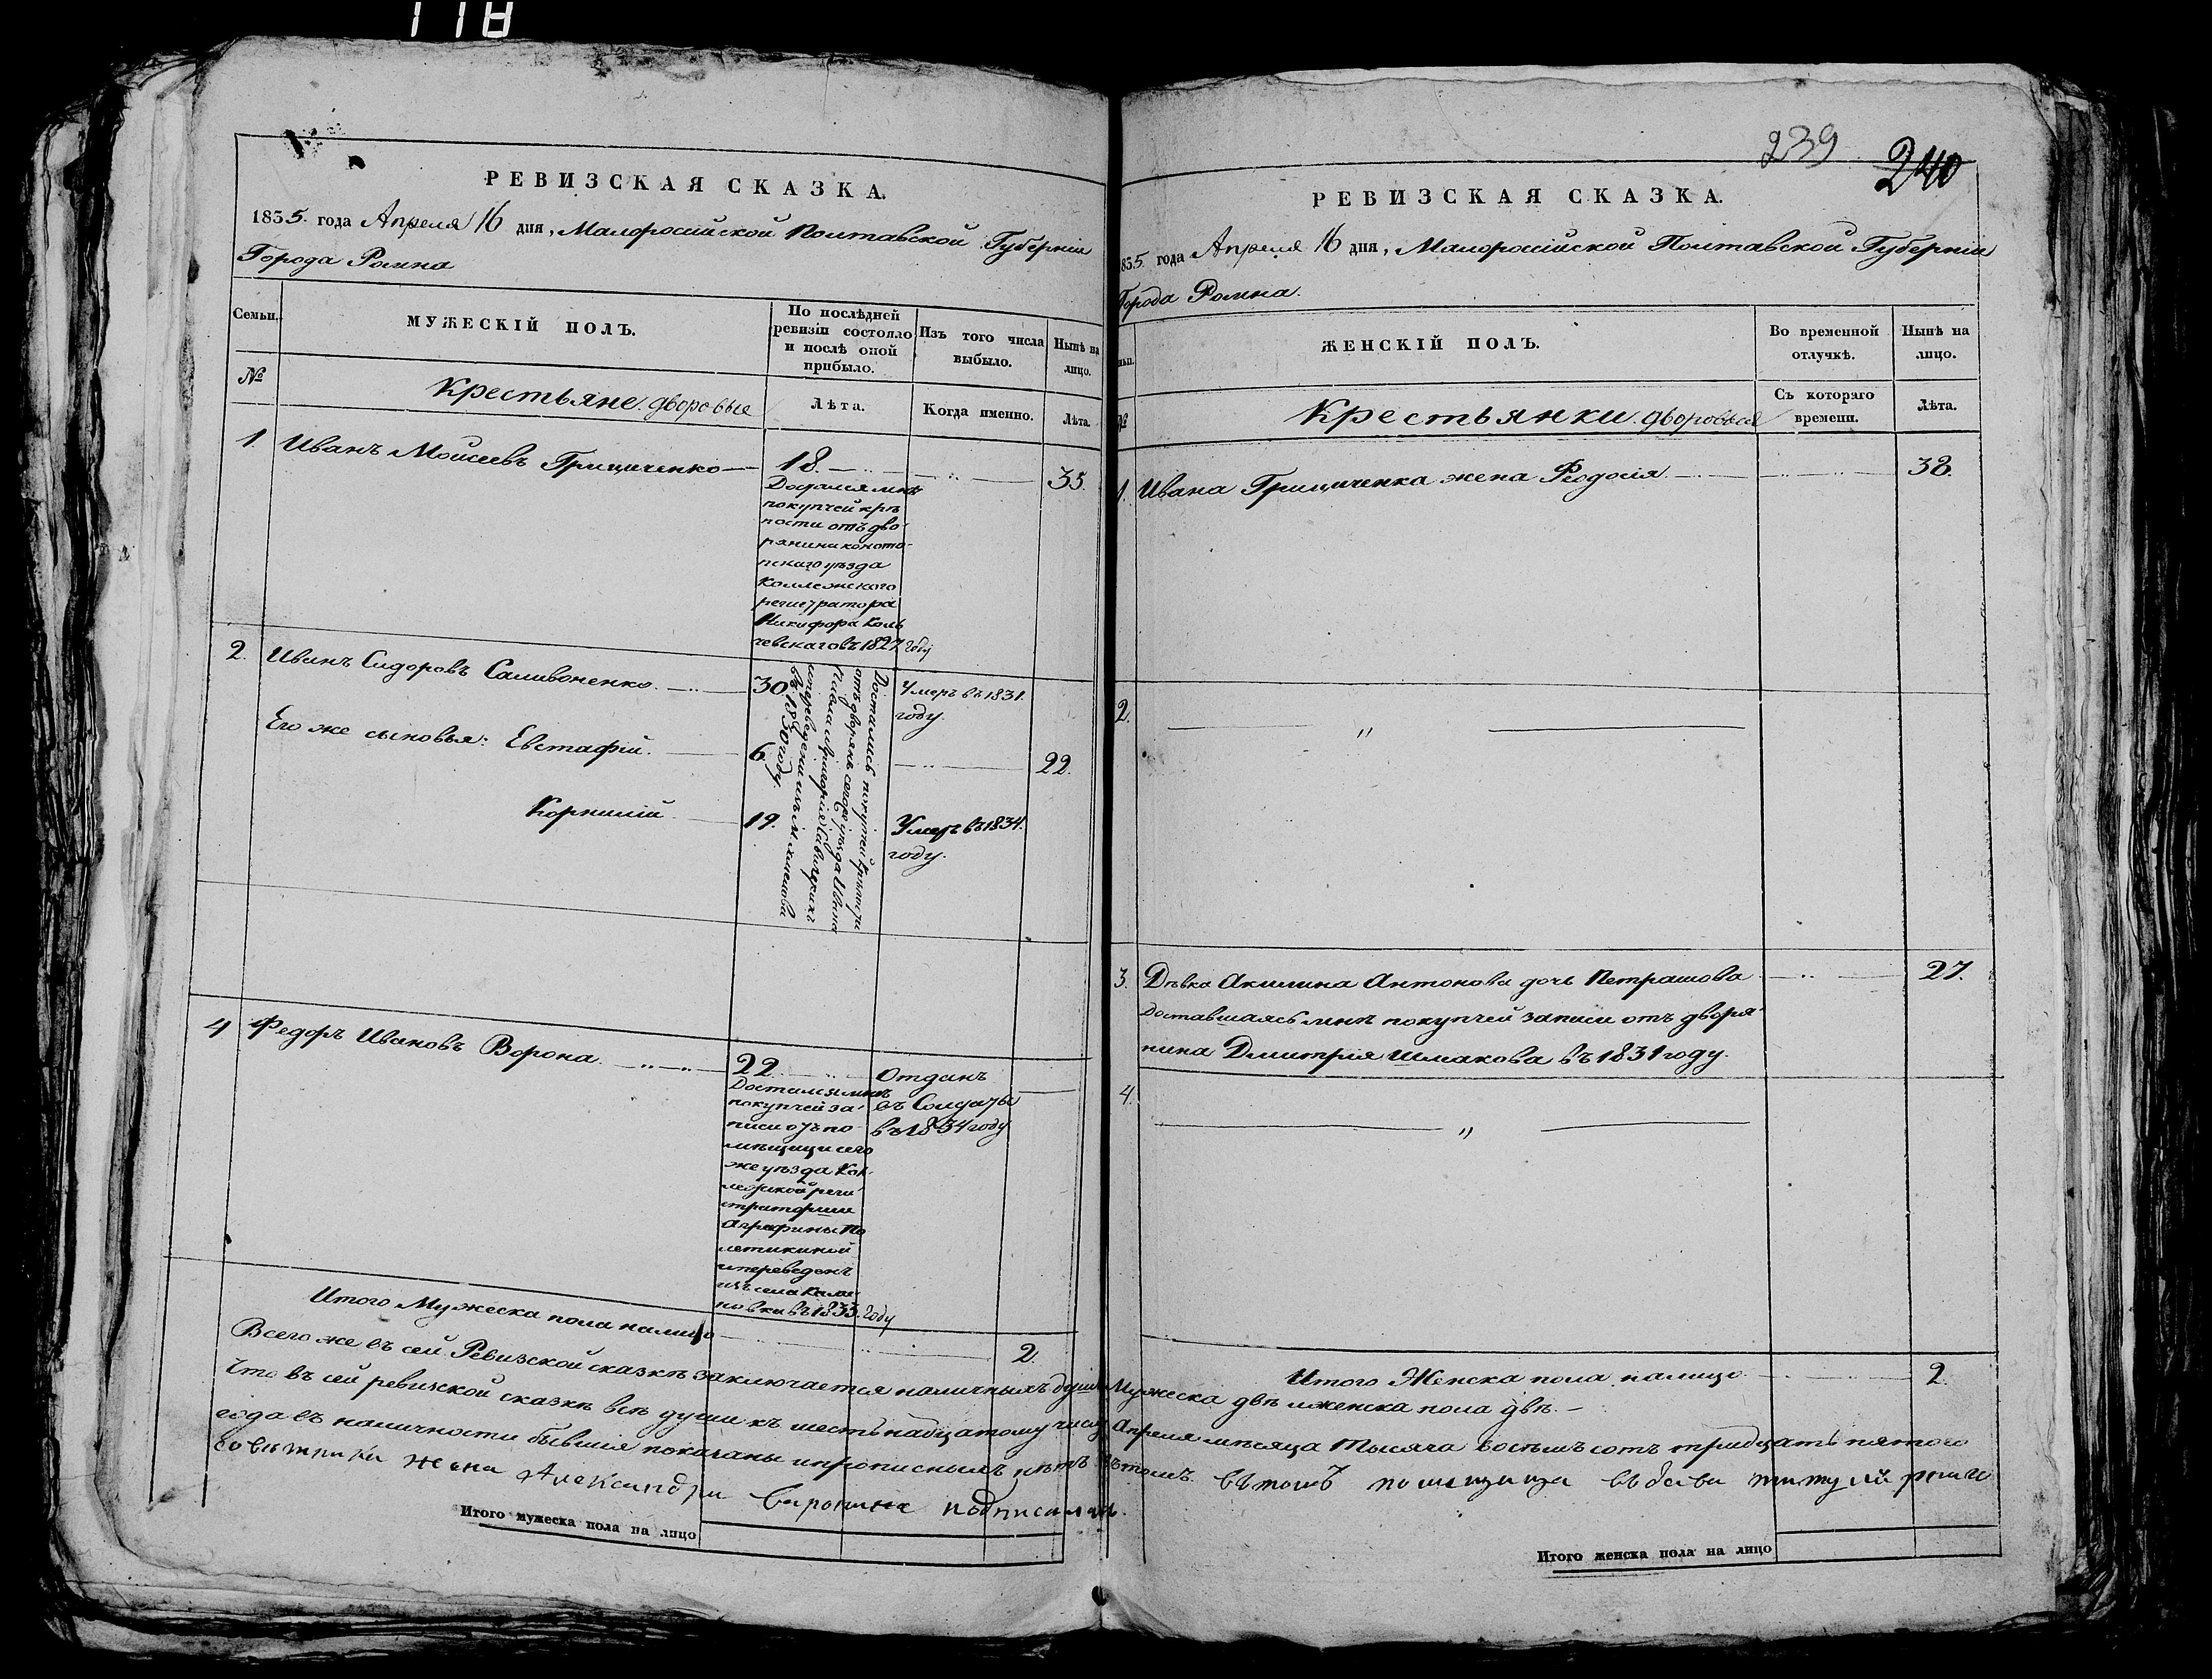 118
РЕВИЗСКАЯ СКАЗКА.
1835. года Апреля 16 дня, Малоросійской Полтавской Губерніи
Города Ромна
Семьи.
МУЖЕСКІЙ ПОЛЪ.
По послѣдней ревизіи состояло и послѣ оной прибыло.
Изъ того числа выбыло.
Нынѣ на лицо.
№
Крестьяне. дворовые
Лѣта.
Когда именно.
Лѣта.
1. Иванъ Моисеевъ Грициченко 18. 35.
Досталсямнѣ
покупчей крѣ
пости отъ дво
рянина коното-
пскаго уѣзда
Коллежскаго
регистратора
Никифора
чевскаговъ1827 году
2. Иванъ Сидоровъ Саливоненко. 30. Умеръ въ1831.
году.
Его же сыновья: Евстафій. 6. 22.
Корнилій 19. Умеръ въ1834.
году.
Достались покупчей
отъ дворянъ сегоже уѣзда Ивана
въ 1830 году.
4 Федоръ Ивановъ Ворона. 22. Отданъ
въ Солдаты
въ1834 году
Досталсямнѣ
покупчей за-
писи отъ по-
мѣщицы сего
же уѣзда Кол-
лежской реги-
стратории
Аграфины По
летикиной
ипереведенъ
изъ села
новкивъ1833. году
Итого Мужеска пола налицо 2.
Всего же въ сей Ревизской сказкѣ заключается наличныхъ душъ Мужеска двѣ иженска пола двѣ.
Что въ сей ревизской сказкѣ всѣ души къ шестьнадцатому числу Апреля мѣсяца тысяча восемь сотъ тридцать пятого
года въ наличности бывшія показаны ипрописныхъ нѣтъ въ томъ. въ томъ помещица
совѣтника жена Александра подписалась.
Итого мужеска пола на лицо
239 240
РЕВИЗСКАЯ СКАЗКА.
835. года Апреля 16 дня, Малоросійской Полтавской Губерніи
Города Ромна.
ЖЕНСКІЙ ПОЛЪ.
Во временной отлучкѣ.
Нынѣ на лицо.
№
Крестьянки. дворовыя
Съ котораго времени.
Лѣта.
1. Ивана Грициченка жена Феодосія. 38.
2. "
3. Дѣвка Акилина Антонова дочь Петрашова 27.
доставшаясь мнѣ покупчей записи отъ дворя
нина Дмитрія Шмакова въ 1831 году.
4. "
Итого Женска пола налицо 2.
Итого женска пола на лицо